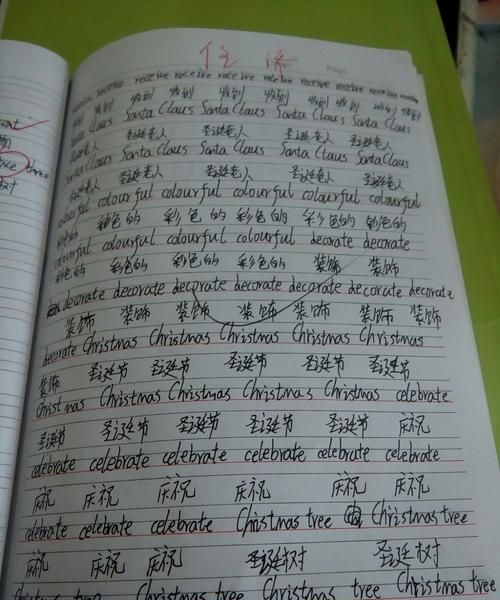 Page
receive receive receive receive receive receive receive receive
收到 收到 收到 收到 收到 收到 收到
Santa Claus Santa Claus Santa Claus Santa Claus
圣诞老人 圣诞老人 圣诞老人 圣诞老人
Santa Claus Santa Claus Santa Claus Santa Claus
圣诞老人 圣诞老人 圣诞老人 圣诞老人
colourful colourful colourful colourful colourful colourful
彩色的 彩色的 彩色的 彩色的 彩色的 彩色的
colourful colourful colourful colourful decorate decorate
彩色的 彩色的 彩色的 彩色的 装饰 装饰
decorate decorate decorate decorate decorate decorate decorate
装饰 装饰 装饰 装饰 装饰 装饰 装饰
decorate Christmas Christmas Christmas Christmas Christmas
装饰 圣诞节 圣诞节 圣诞节 圣诞节 圣诞节
Christmas Christmas Christmas Christmas Christmas celebrate
圣诞节 圣诞节 圣诞节 圣诞节 圣诞节 庆祝
celebrate celebrate celebrate celebrate celebrate celebrate
庆祝 庆祝 庆祝 庆祝 庆祝 庆祝
celebrate celebrate celebrate Christmas tree Christmas tree
庆祝 庆祝 庆祝 圣诞树 圣诞树
Christmas tree Christmas tree Christmas tree Christmas tree